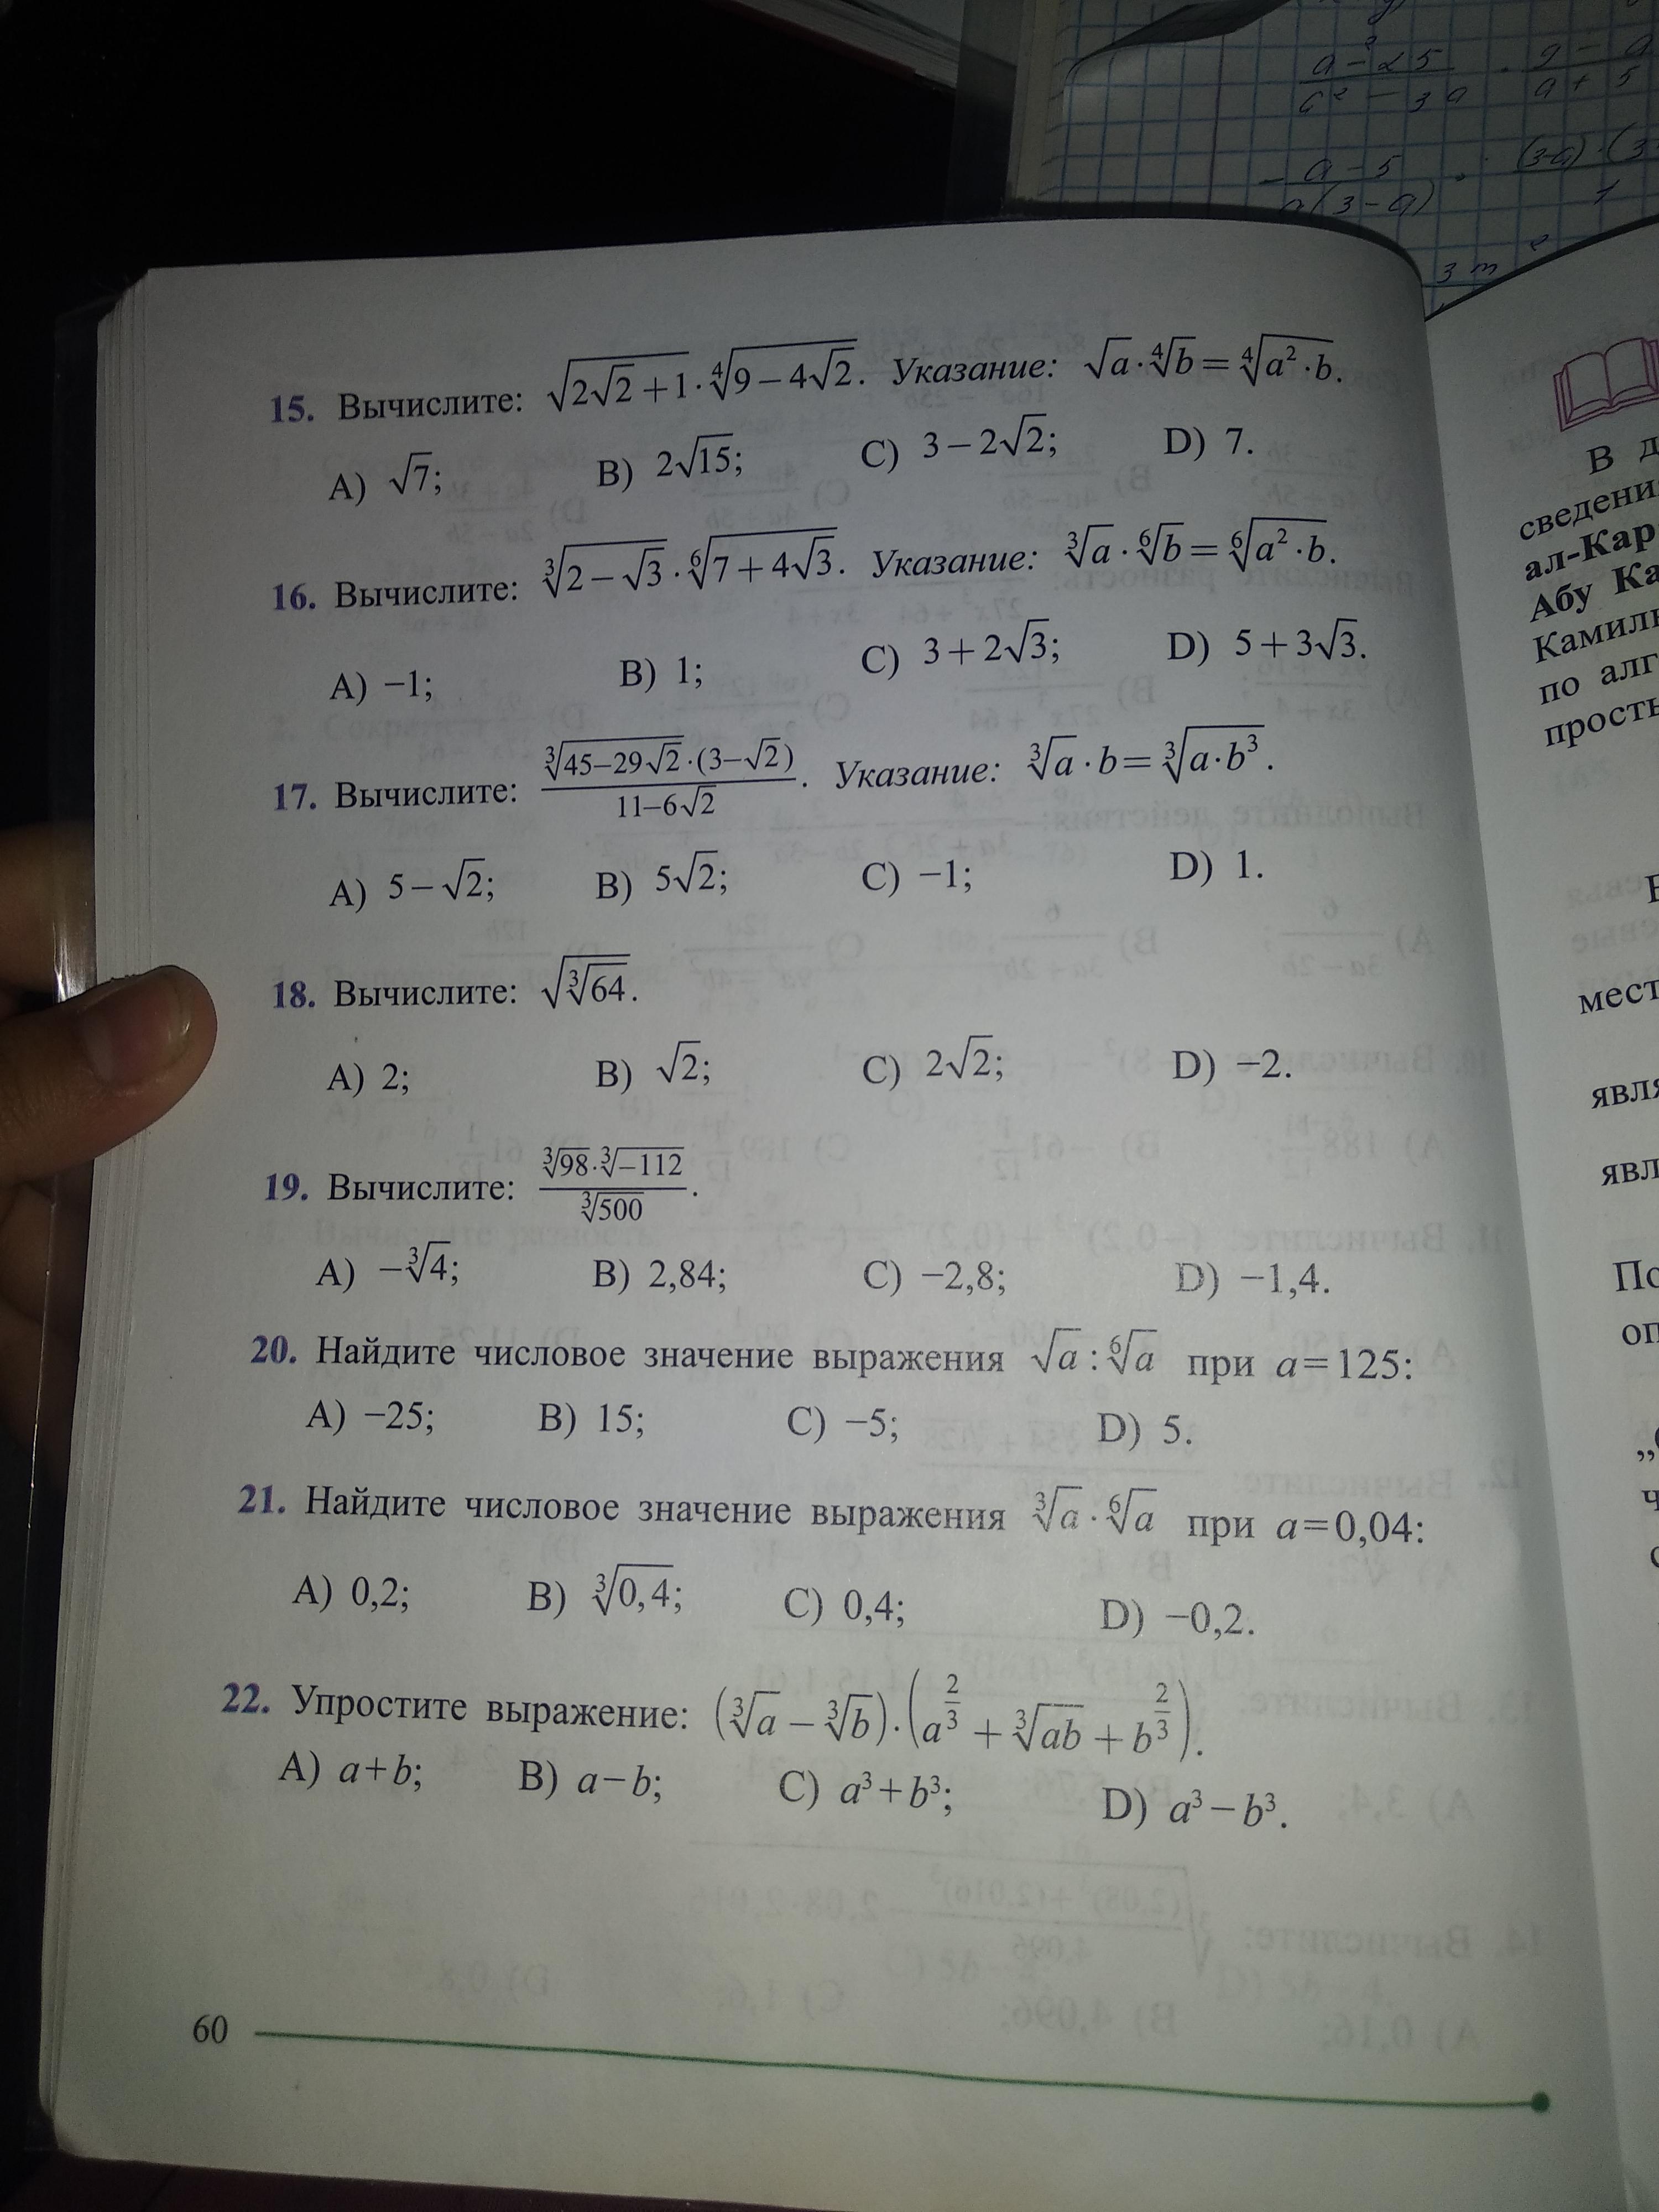 a² − 25 / a² − 3a · 9 − a
a + 5
− a − 5 / a(3 − a) · (3−a) · (3
1
15. Вычислите: √(2√2 + 1) · ⁴√(9 − 4√2). Указание: √a · ⁴√b = ⁴√(a² · b).
A) √7; B) 2√15; C) 3 − 2√2; D) 7.
16. Вычислите: ³√(2 − √3) · ⁶√(7 + 4√3). Указание: ³√a · ⁶√b = ⁶√(a² · b).
A) −1; B) 1; C) 3 + 2√3; D) 5 + 3√3.
17. Вычислите: (³√(45−29√2) · (3−√2)) / (11−6√2). Указание: ³√a · b = ³√(a · b³).
A) 5 − √2; B) 5√2; C) −1; D) 1.
18. Вычислите: √(³√64).
A) 2; B) √2; C) 2√2; D) −2.
19. Вычислите: (³√98 · ³√−112) / ³√500.
A) −³√4; B) 2,84; C) −2,8; D) −1,4.
20. Найдите числовое значение выражения √a : ⁶√a при a=125:
A) −25; B) 15; C) −5; D) 5.
21. Найдите числовое значение выражения ³√a · ⁶√a при a=0,04:
A) 0,2; B) ³√0,4; C) 0,4; D) −0,2.
22. Упростите выражение: (³√a − ³√b) · (a^(2/3) + ³√ab + b^(2/3)).
A) a+b; B) a−b; C) a³+b³; D) a³−b³.
60
В
ал-Кар
Абу Ка
по алг
мест
явл